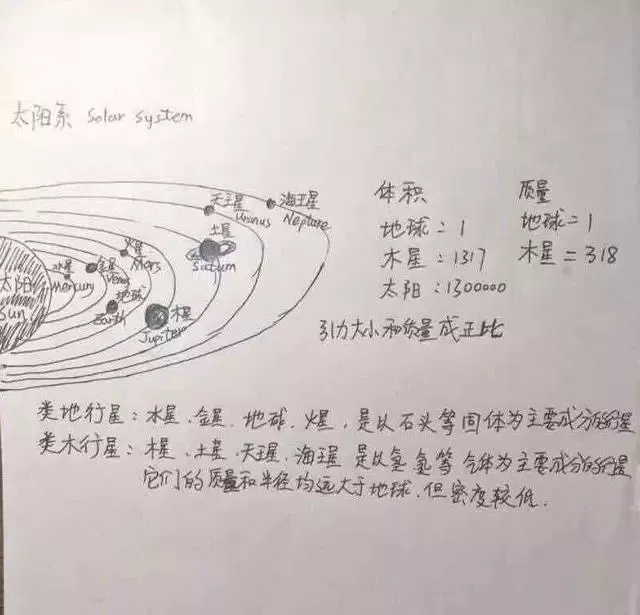 太阳系 Solar System
天王星
Uranus
海王星
Neptune
土星
Saturn
火星
Mars
水星
Mercury
金星
Venus
太阳
Sun
地球
Earth
木星
Jupiter
体积
地球=1
木星:1317
太阳:1300000
质量
地球=1
木星=318
引力大小和质量成正比
类地行星:水星、金星、地球、火星,是以石头等固体为主要成分的行星
类木行星:木星、土星、天王星、海王星 是以氢氦等气体为主要成分的行星
它们的质量和半径均远大于地球,但密度较低.